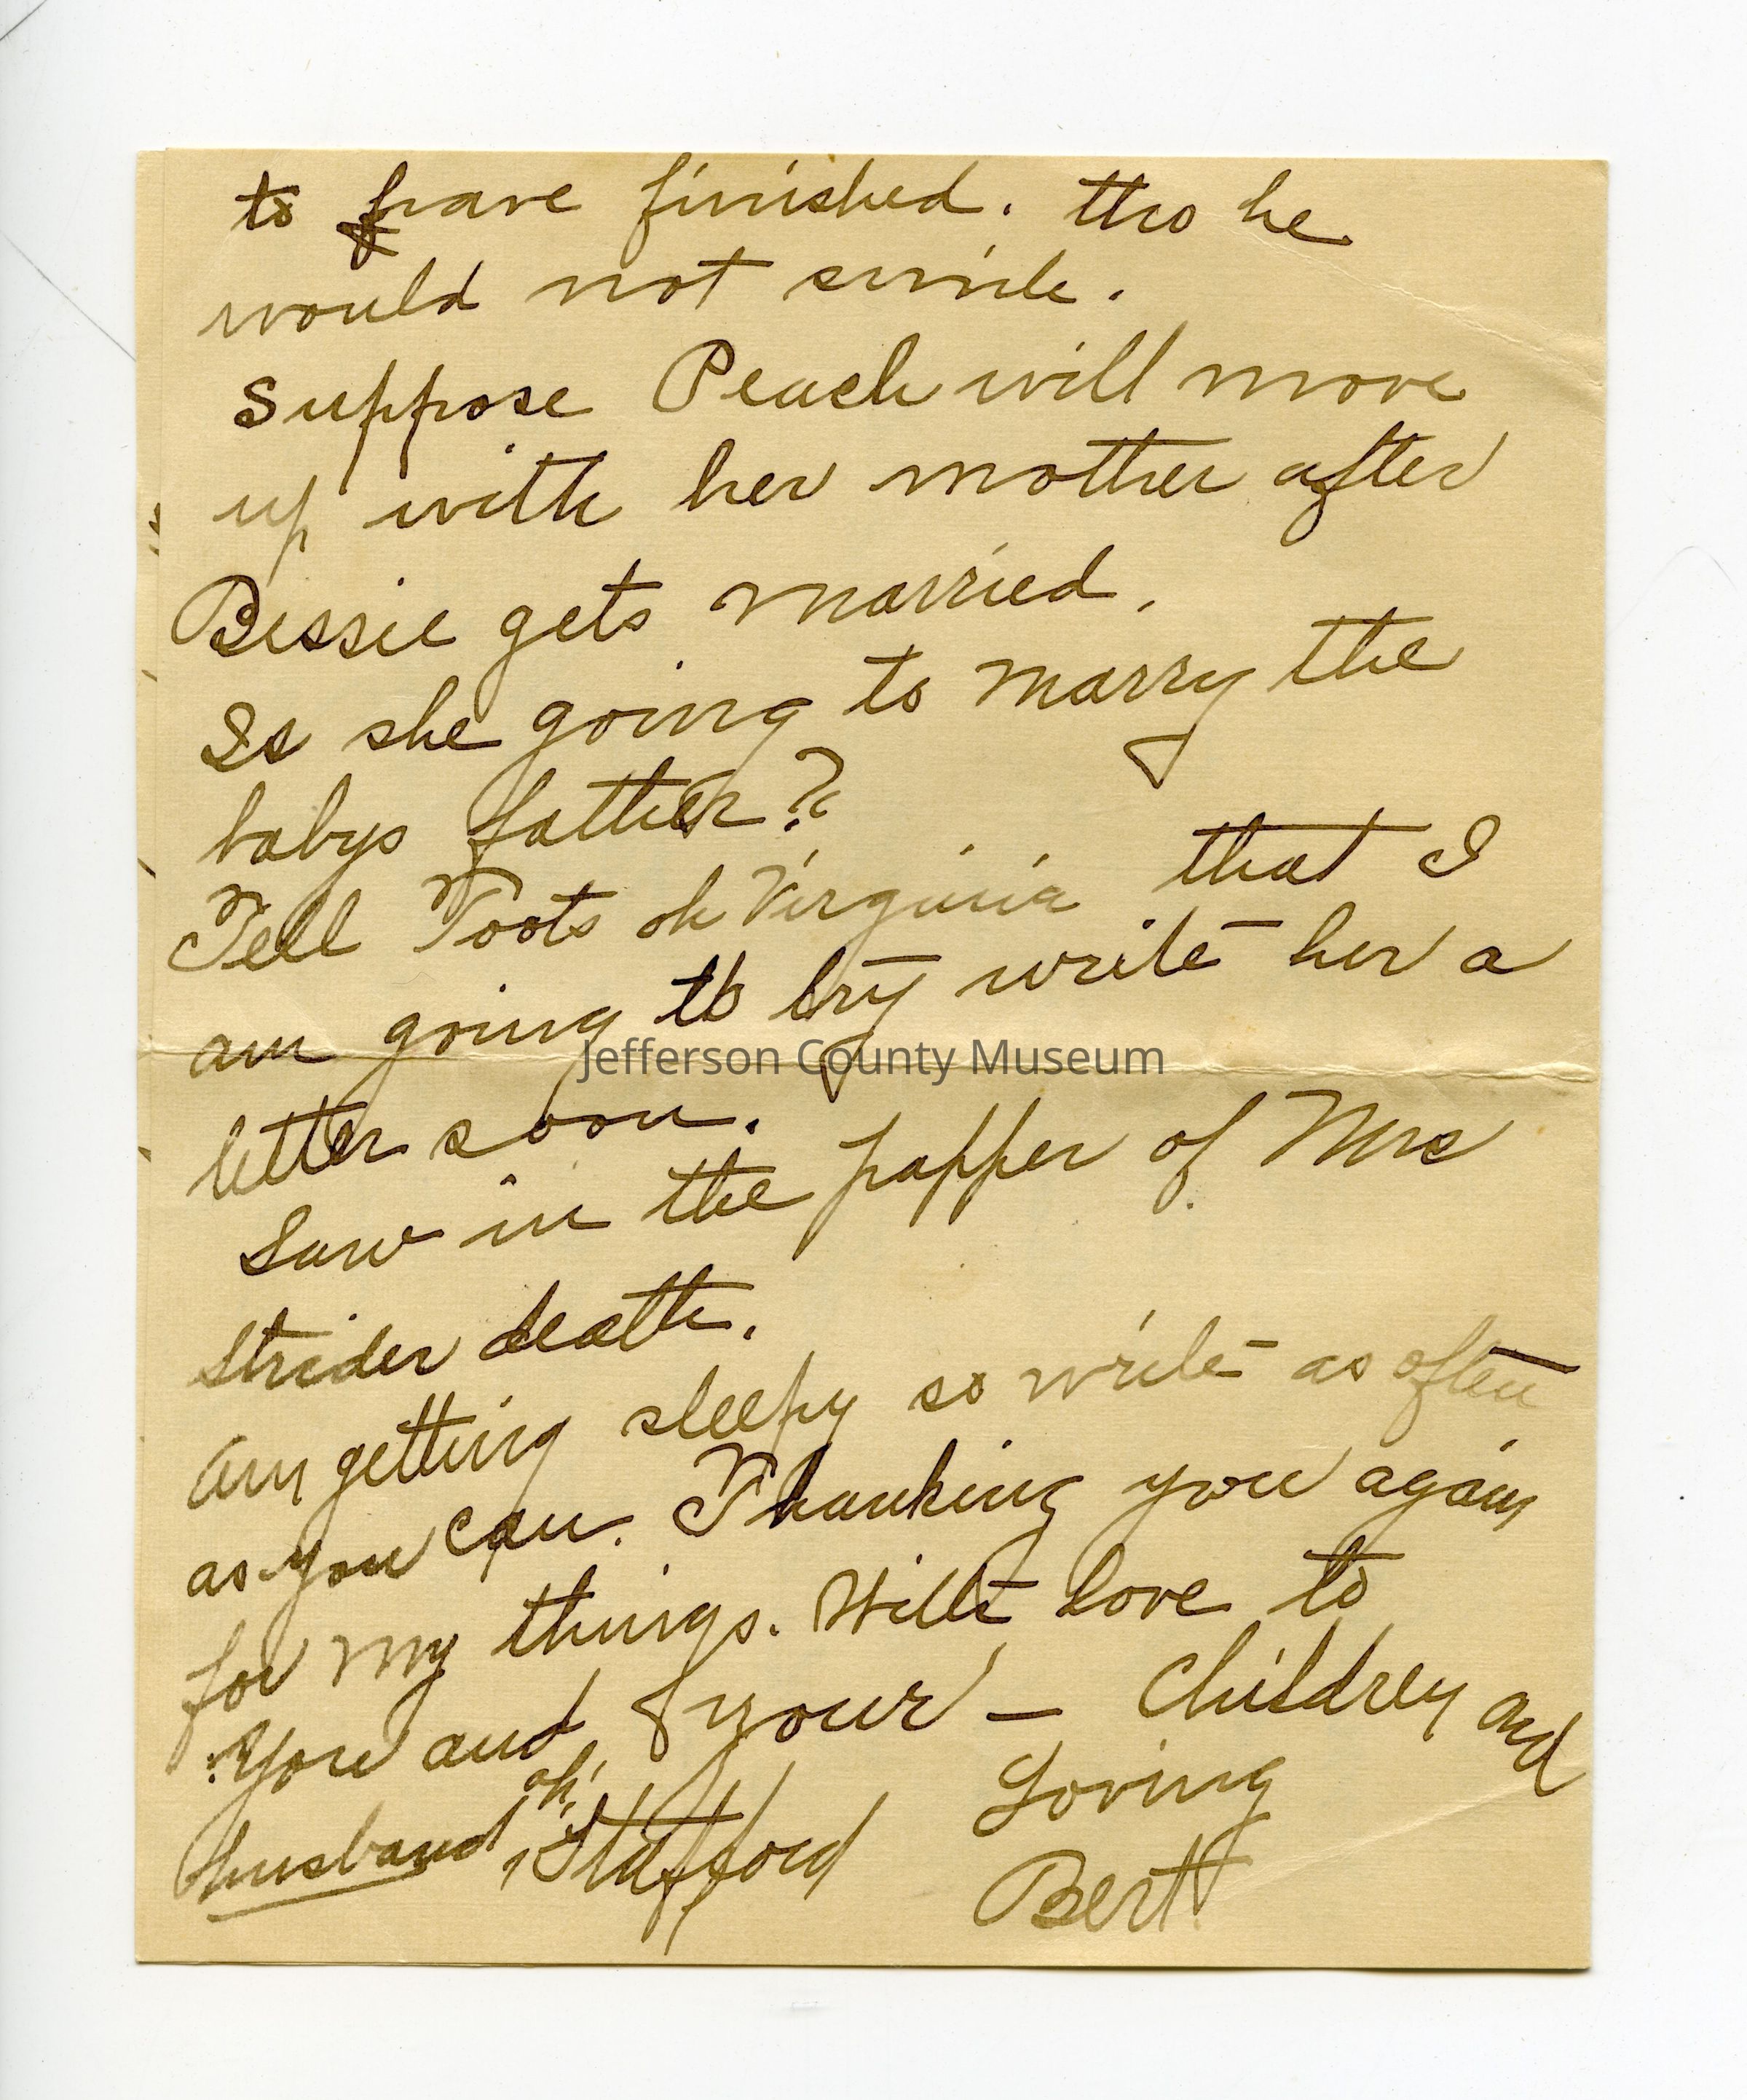 to have finished. tho he
would not smile.
Suppose Peach will move
up with her mother after
Bessie gets married.
Is she going to marry the
babys father?
Tell Toots oh Virginia that I
am going to try write her a
Jefferson County Museum
letter soon.
Saw in the papper of Mrs
Strider death.
Am getting sleepy so write as often
as you can. Thanking you again
for my things. With love to
you and your — Children and
husband, oh! Stafford
Loving
Bert